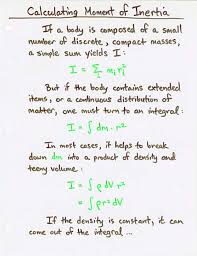 Calculating Moment of Inertia
If a body is composed of a small
number of discrete, compact masses,
a simple sum yields I:
I = Σᵢ mᵢ rᵢ²
But if the body contains extended
items, or a continuous distribution of
matter, one must turn to an integral:
I = ∫ dm · r²
In most cases, it helps to break
down dm into a product of density and
teeny volume:
I = ∫ ρ dV r²
= ∫ ρ r² dV
If the density is constant, it can
come out of the integral ...